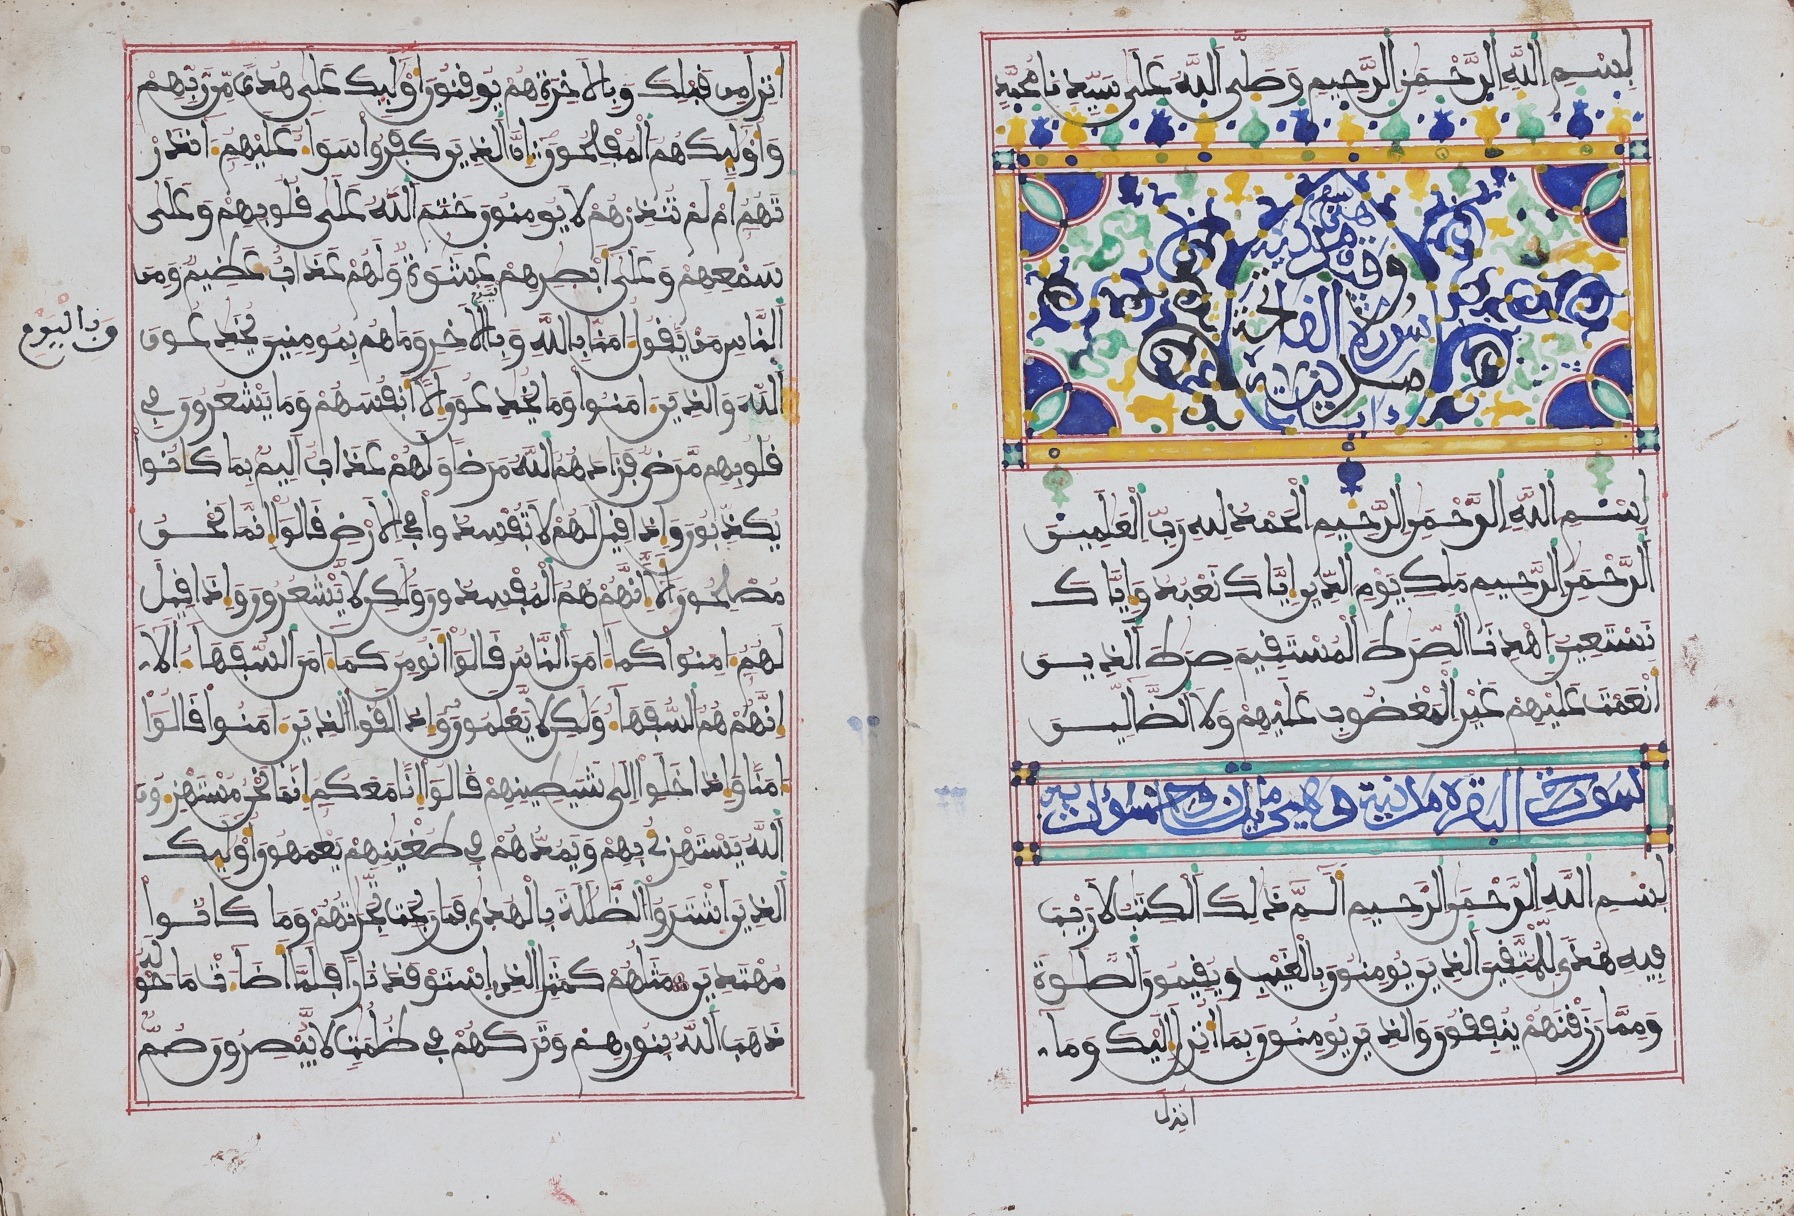 بِسْمِ اللَّهِ الرَّحْمَنِ الرَّحِيمِ وَصَلَّى اللَّهُ عَلَى سَيِّدِنَا مُحَمَّدٍ
سورة الفاتحة
بِسْمِ اللَّهِ الرَّحْمَنِ الرَّحِيمِ الْحَمْدُ لِلهِ رَبِّ الْعَلَمِينَ
الرَّحْمَنِ الرَّحِيمِ مَلِكِ يَوْمِ الدِّينِ إِيَّاكَ نَعْبُدُ وَإِيَّاكَ
نَسْتَعِينُ اهْدِنَا الصِّرَطَ الْمُسْتَقِيمَ صِرَطَ الَّذِينَ
أَنْعَمْتَ عَلَيْهِمْ غَيْرِ الْمَغْضُوبِ عَلَيْهِمْ وَلَا الضَّالِّينَ
سورة البقرة مدنية وهي مائتان
بِسْمِ اللَّهِ الرَّحْمَنِ الرَّحِيمِ الَمِّ ذَلِكَ الْكِتَبُ لَا رَيْبَ
فِيهِ هُدًى لِّلْمُتَّقِينَ الَّذِينَ يُومِنُونَ بِالْغَيْبِ وَيُقِيمُونَ الصَّلَوةَ
وَمِمَّا رَزَقْنَهُمْ يُنفِقُونَ وَالَّذِينَ يُومِنُونَ بِمَا أُنزِلَ إِلَيْكَ وَمَا
انزل
أُنزِلَ مِن قَبْلِكَ وَبِالْاخِرَةِ هُمْ يُوقِنُونَ أُوْلَيِكَ عَلَى هُدًى مِّن رَّبِّهِمْ
وَأُوْلَيِكَ هُمُ الْمُفْلِحُونَ إِنَّ الَّذِينَ كَفَرُوا سَوَاءٌ عَلَيْهِمُ ءَانذَرْ
تَهُمُ أَمْ لَمْ تُنذِرْهُمْ لَا يُومِنُونَ خَتَمَ اللَّهُ عَلَى قُلُوبِهِمْ وَعَلَى
سَمْعِهِمْ وَعَلَى أَبْصِرِهِمْ غِشَوَةٌ وَلَهُمْ عَذَابٌ عَظِيمٌ وَمِنَ
النَّاسِ مَنْ يَّقُولُ ءَامَنَّا بِاللَّهِ وَبِالْاخِرِ وَمَا هُم بِمُومِنِينَ يُخَدِعُونَ
وباليوم
اللَّهَ وَالَّذِينَ ءَامَنُوا وَمَا يُخَدِعُونَ إِلَّا أَنفُسَهُمْ وَمَا يَشْعُرُونَ فِي
قُلُوبِهِم مَّرَضٌ فَزَادَهُمُ اللَّهُ مَرَضًا وَلَهُمْ عَذَابٌ أَلِيمٌ بِمَا كَانُوا
يُكَذِّبُونَ وَإِذَا قِيلَ لَهُمْ لَا تُفْسِدُوا فِي الْأَرْضِ قَالُوا إِنَّمَا نَحْنُ
مُصْلِحُونَ أَلَا إِنَّهُمْ هُمُ الْمُفْسِدُونَ وَلَكِن لَّا يَشْعُرُونَ وَإِذَا قِيلَ
لَهُمُ ءَامِنُوا كَمَا ءَامَنَ النَّاسُ قَالُوا أَنُومِنُ كَمَا ءَامَنَ السُّفَهَاءُ أَلَا
إِنَّهُمْ هُمُ السُّفَهَاءُ وَلَكِن لَّا يَعْلَمُونَ وَإِذَا لَقُوا الَّذِينَ ءَامَنُوا قَالُوا
ءَامَنَّا وَإِذَا خَلَوْا إِلَى شَيَطِينِهِمْ قَالُوا إِنَّا مَعَكُمُ إِنَّمَا نَحْنُ مُسْتَهْزِءُونَ
اللَّهُ يَسْتَهْزِئُ بِهِمْ وَيَمُدُّهُمْ فِي طُغْيَنِهِمْ يَعْمَهُونَ أُوْلَيِكَ
الَّذِينَ اشْتَرَوُا الضَّلَلَةَ بِالْهُدَى فَمَا رَبِحَت تِّجَرَتُهُمْ وَمَا كَانُوا
مُهْتَدِينَ مَثَلُهُمْ كَمَثَلِ الَّذِي اسْتَوْقَدَ نَارًا فَلَمَّا أَضَاءَتْ مَا حَوْلَهُ
ذَهَبَ اللَّهُ بِنُورِهِمْ وَتَرَكَهُمْ فِي ظُلُمَتٍ لَّا يُبْصِرُونَ صُمٌّ